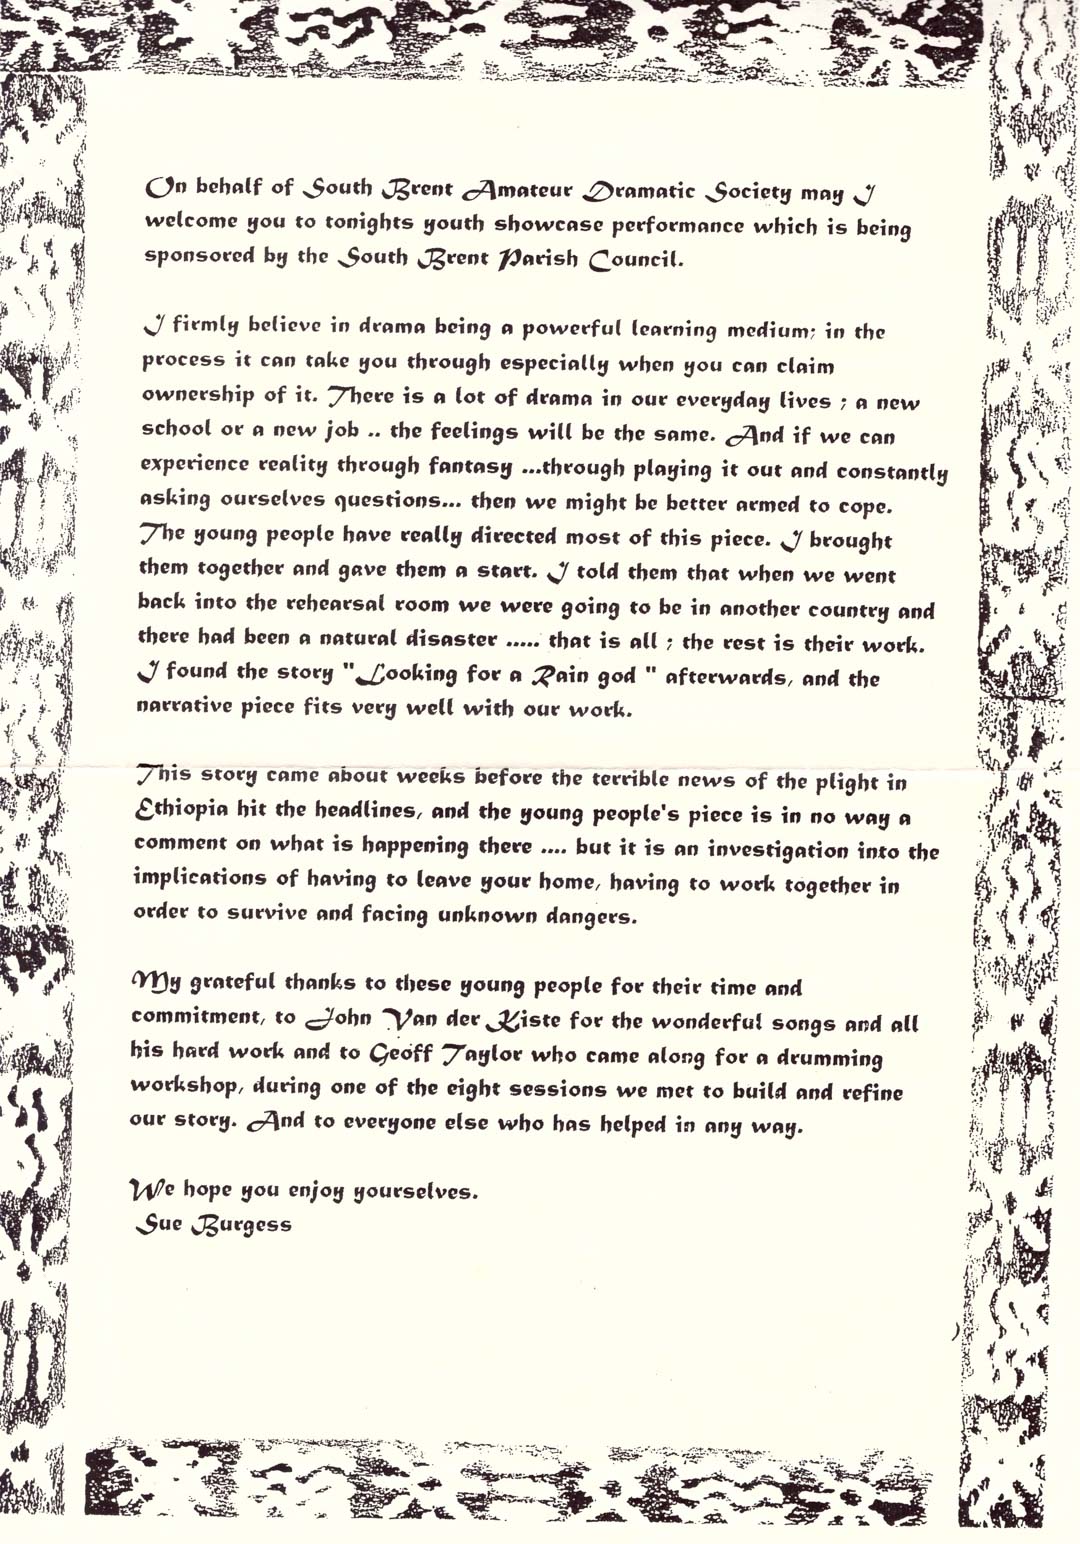 On behalf of South Brent Amateur Dramatic Society may I
welcome you to tonights youth showcase performance which is being
sponsored by the South Brent Parish Council.
I firmly believe in drama being a powerful learning medium; in the
process it can take you through especially when you can claim
ownership of it. There is a lot of drama in our everyday lives ; a new
school or a new job .. the feelings will be the same. And if we can
experience reality through fantasy ...through playing it out and constantly
asking ourselves questions... then we might be better armed to cope.
The young people have really directed most of this piece. I brought
them together and gave them a start. I told them that when we went
back into the rehearsal room we were going to be in another country and
there had been a natural disaster ..... that is all ; the rest is their work.
I found the story "Looking for a Rain god " afterwards, and the
narrative piece fits very well with our work.
This story came about weeks before the terrible news of the plight in
Ethiopia hit the headlines, and the young people's piece is in no way a
comment on what is happening there .... but it is an investigation into the
implications of having to leave your home, having to work together in
order to survive and facing unknown dangers.
My grateful thanks to these young people for their time and
commitment, to John Van der Kiste for the wonderful songs and all
his hard work and to Geoff Taylor who came along for a drumming
workshop, during one of the eight sessions we met to build and refine
our story. And to everyone else who has helped in any way.
We hope you enjoy yourselves.
Sue Burgess